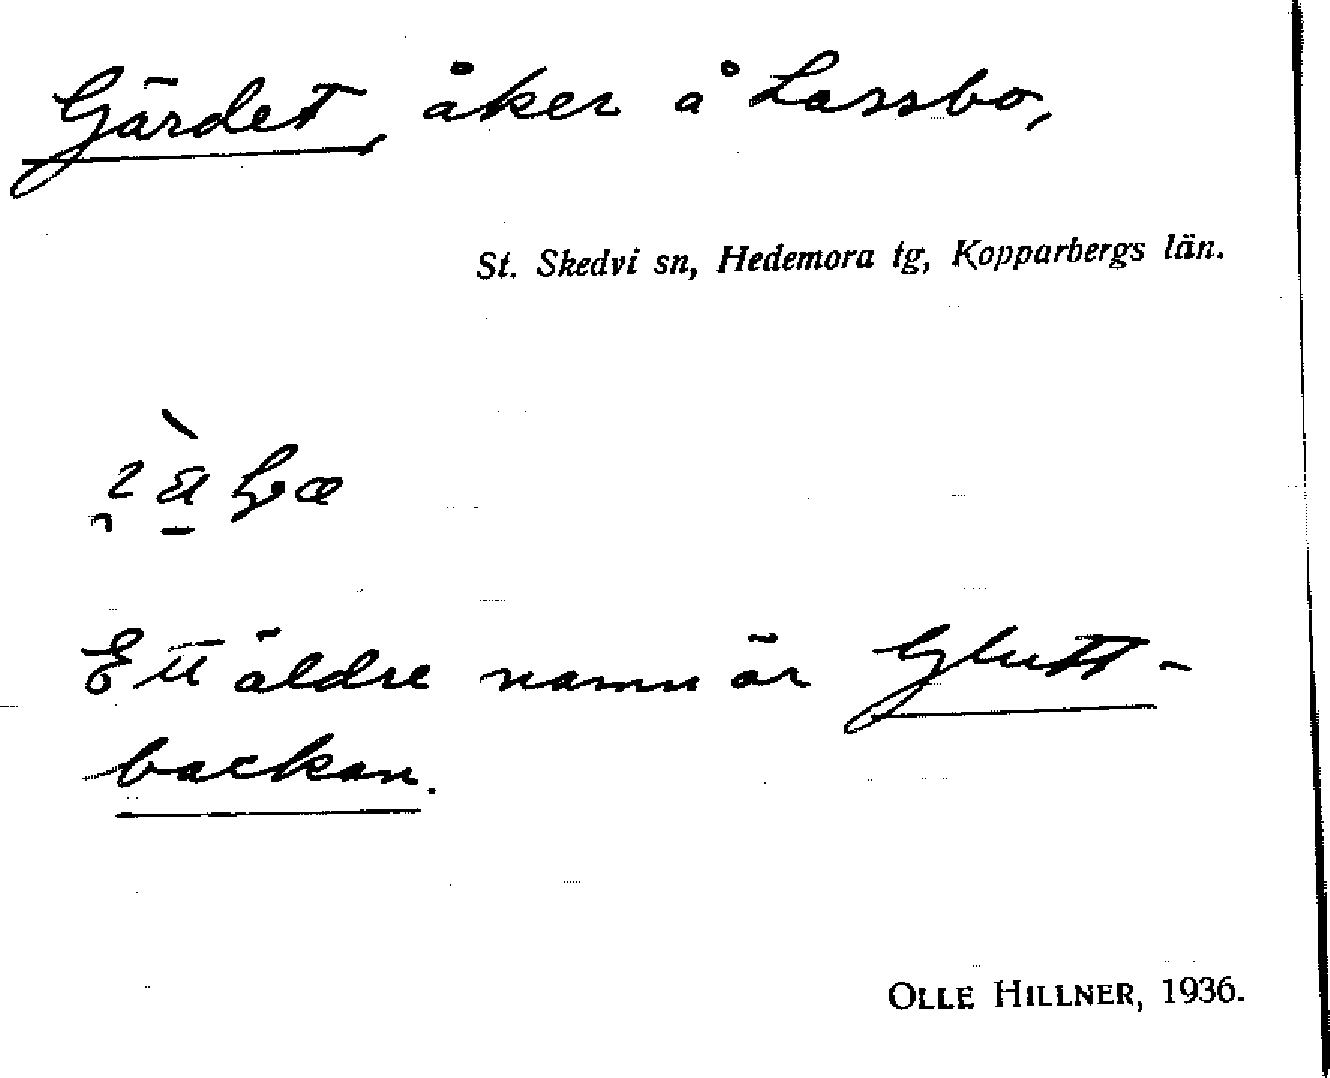 Gärdet, åker å Lassbo,
St. Skedvi sn, Hedemora tg, Kopparbergs län.
Ett äldre namn är Glutt-
backan.
OLLE HILLNER, 1936.